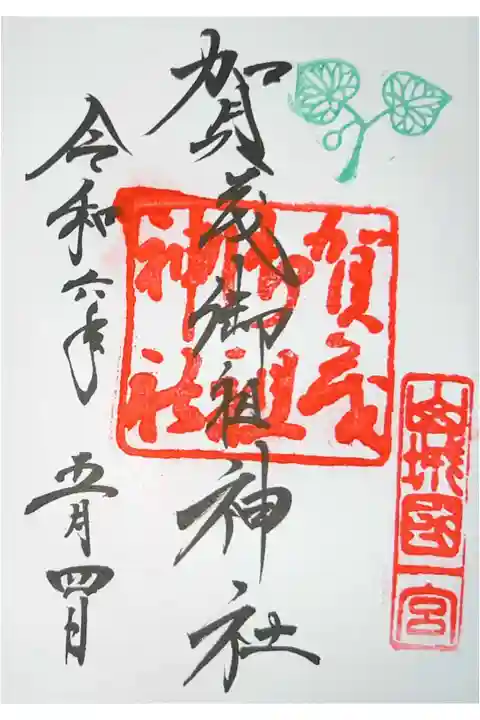 山城國一宮
賀茂御祖神社
賀茂
御祖
神社
令和六年 五月四日